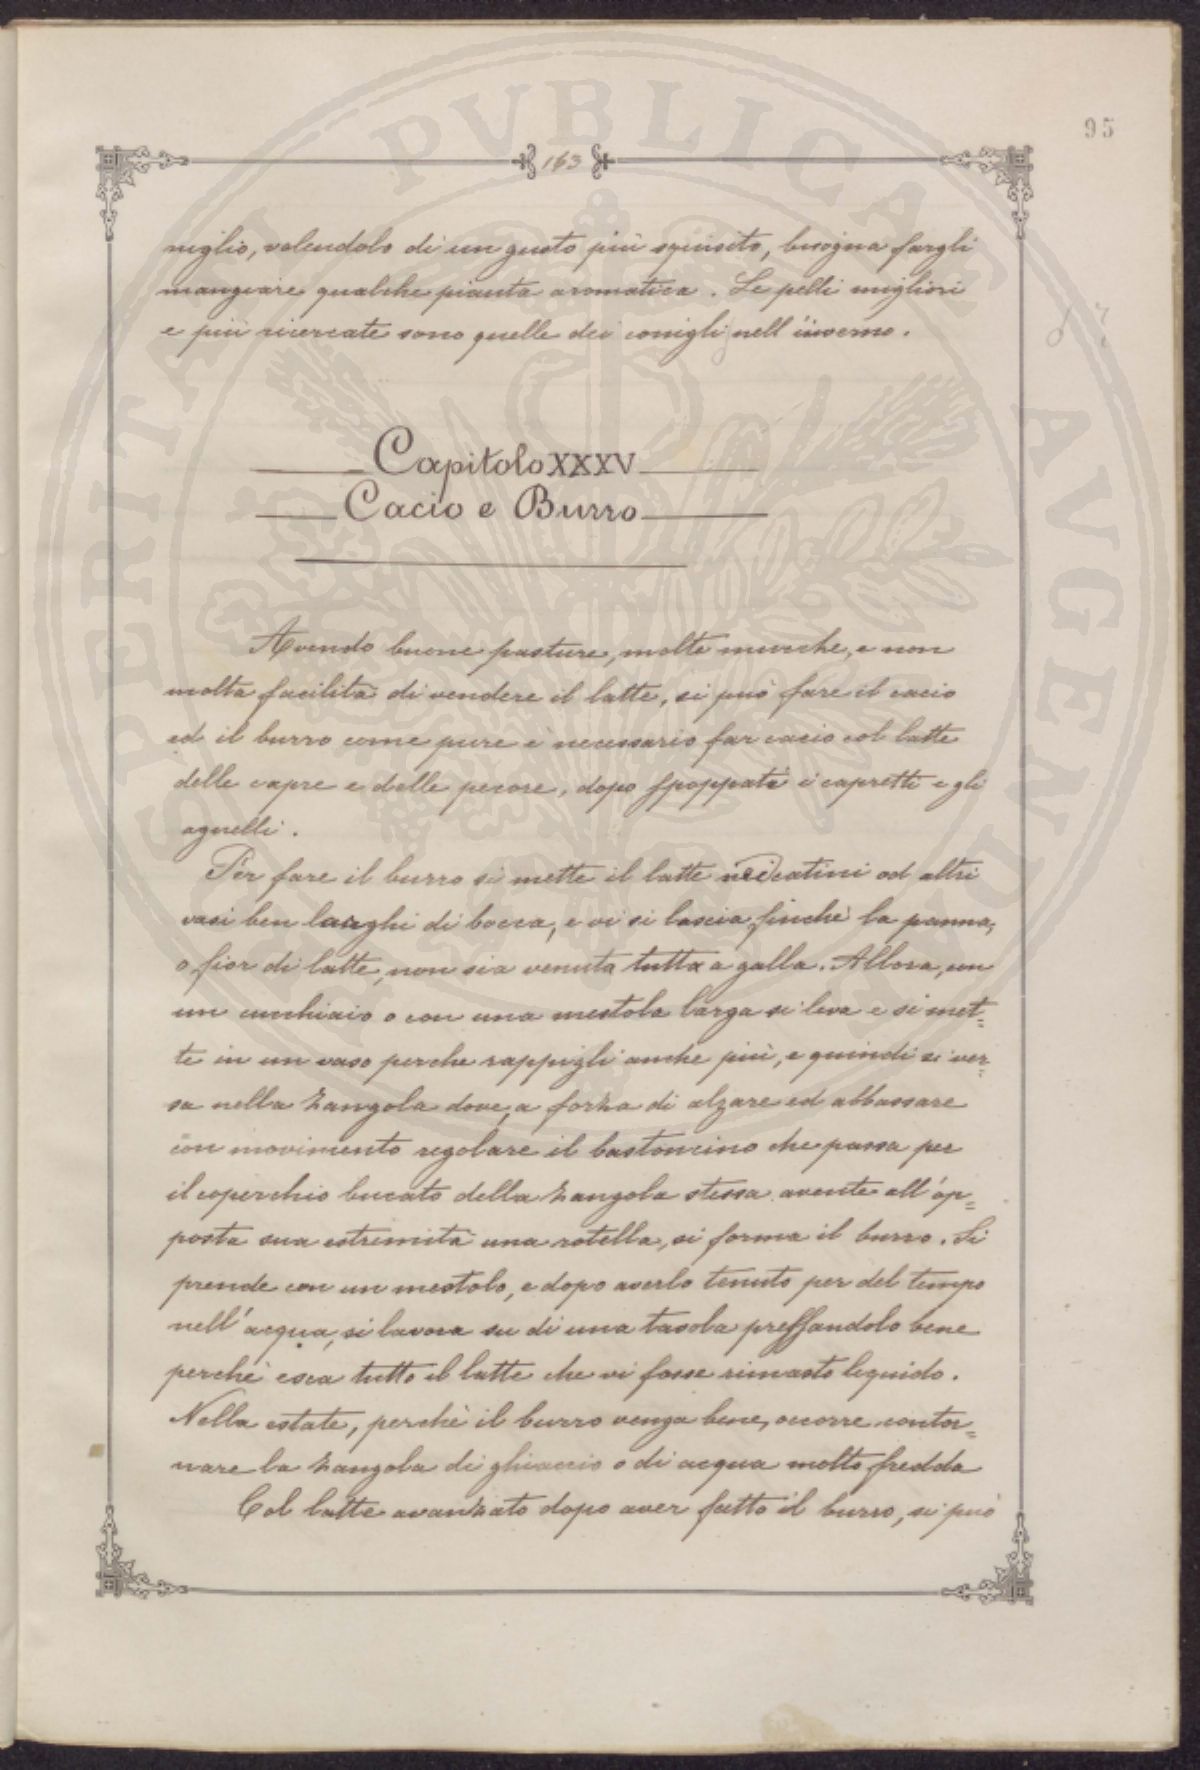 95
163
niglio, volendolo di un gusto più squisito, bisogna fargli
mangiare qualche pianta aromatica. Le pelli migliori
e più ricercate sono quelle dei conigli nell'inverno.
Capitolo XXXV
Cacio e Burro
Avendo buone pasture, molte mucche, e non
molta facilità di vendere il latte, si può fare il cacio
ed il burro come pure è necessario far cacio col latte
delle capre e delle pecore, dopo spoppati i capretti e gli
agnelli.
Per fare il burro si mette il latte nei catini od altri
vasi ben larghi di bocca, e vi si lascia finchè la panna,
o fior di latte, non sia venuta tutta a galla. Allora, con
un cucchiaio o con una mestola larga si leva e si met=
te in un vaso perche rappigli anche più, e quindi si ver=
sa nella zangola dove, a forza di alzare ed abbassare
con movimento regolare il bastoncino che passa per
il coperchio bucato della zangola stessa avente all'op=
posta sua estremità una rotella, si forma il burro. Si
prende con un mestolo, e dopo averlo tenuto per del tempo
nell'acqua, si lavora su di una tavola pressandolo bene
perchè esca tutto il latte che vi fosse rimasto liquido.
Nella estate, perchè il burro venga bene, occorre contor=
nare la zangola di ghiaccio o di acqua molto fredda
Col latte avanzato dopo aver fatto il burro, si può
PVBLICAE AVGENDAE